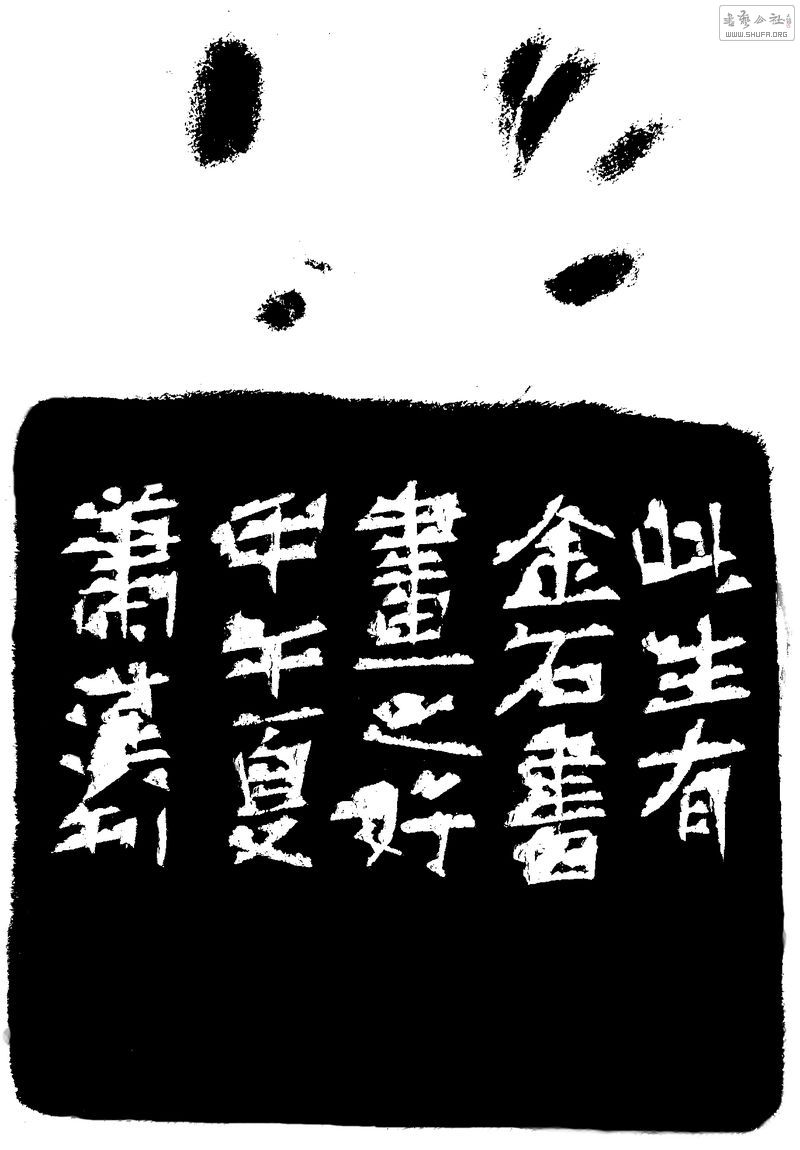 書藝公社
WWW.SHUFA.ORG
此生有
金石書
畫之好
甲午夏
蕭